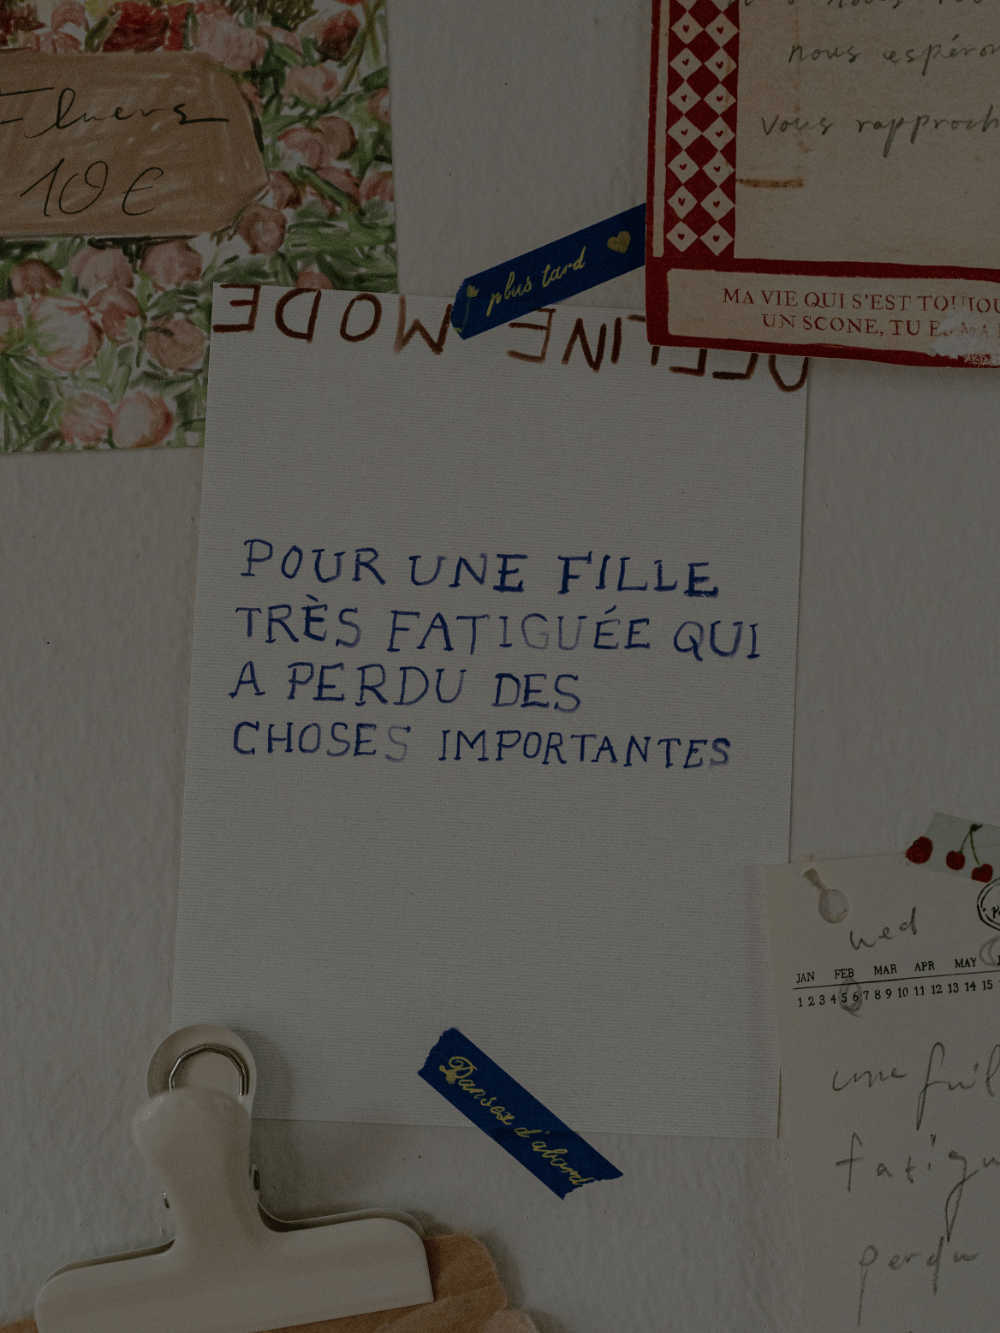 Fluers
10€
nous espéron
vous rapproch
MA VIE QUI S'EST TOUJOU
UN SCONE, TU E
plus tard
MODE
POUR UNE FILLE
TRÈS FATIGUÉE QUI
A PERDU DES
CHOSES IMPORTANTES
Dansez d'abord
wed
JAN FEB MAR APR MAY
1 2 3 4 5 6 7 8 9 10 11 12 13 14 15
une fuil
fatigu
perdu